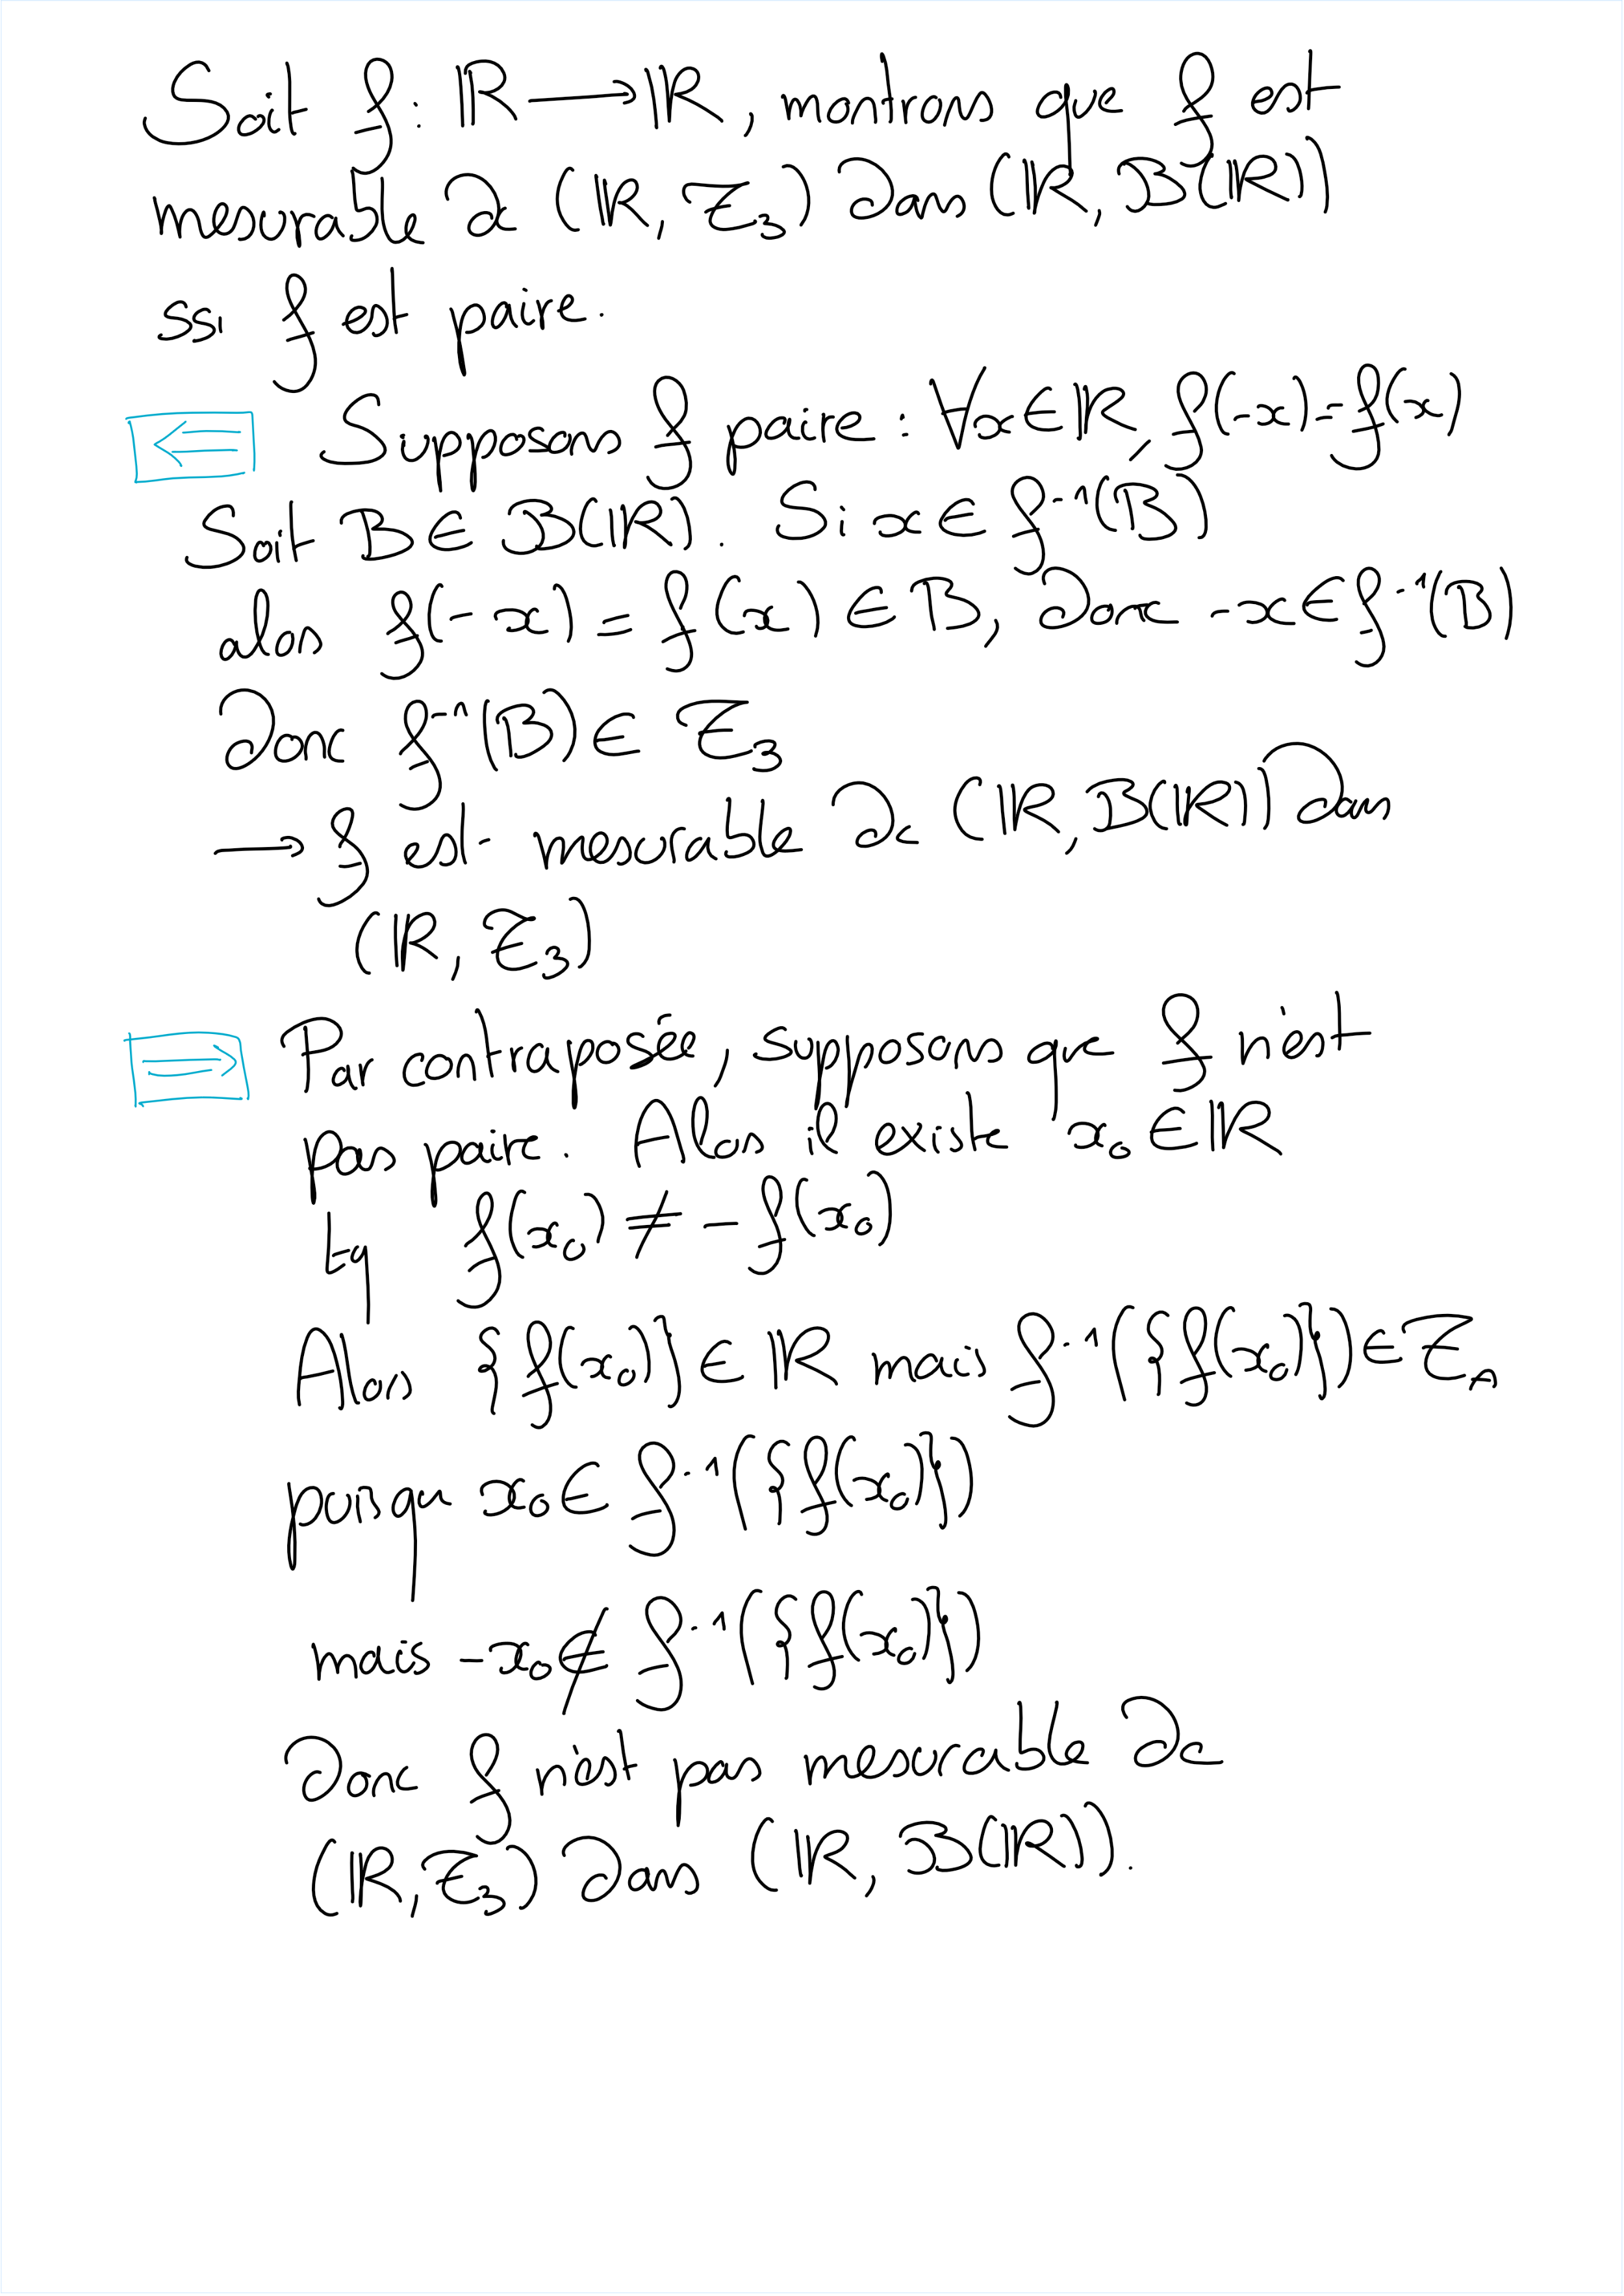 Soit f: ℝ ⟶ ℝ, montrons que f est
mesurable de (ℝ, Ƶ₃) dans (ℝ, B(ℝ))
ssi f est paire.
⟸ Supposons f paire : ∀x∈ℝ, f(-x)=f(x)
Soit B ∈ B(ℝ). Si x ∈ f⁻¹(B)
alors f(-x) = f(x) ∈ B, donc -x ∈ f⁻¹(B)
donc f⁻¹(B) ∈ Ƶ₃
→ f est mesurable de (ℝ, B(ℝ)) dans
(ℝ, Ƶ₃)
⟹ Par contraposée, supposons que f n'est
pas paire. Alors il existe x₀ ∈ ℝ
tq f(x₀) ≠ -f(x₀)
Alors {f(x₀)} ∈ ℝ mais f⁻¹({f(x₀)}) ∈ Ƶ₁
puisque x₀ ∈ f⁻¹({f(x₀)})
mais -x₀ ∉ f⁻¹({f(x₀)})
donc f n'est pas mesurable de
(ℝ, Ƶ₃) dans (ℝ, B(ℝ)).